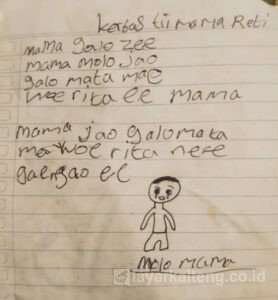 kertas tii mama Reti
mama galo zee
mama molo Jao
galo mata mae
woe rita ee mama
mama jao galo mata
mae woe rita nee
gaengao ee
molo mama
layarkalteng.co.id